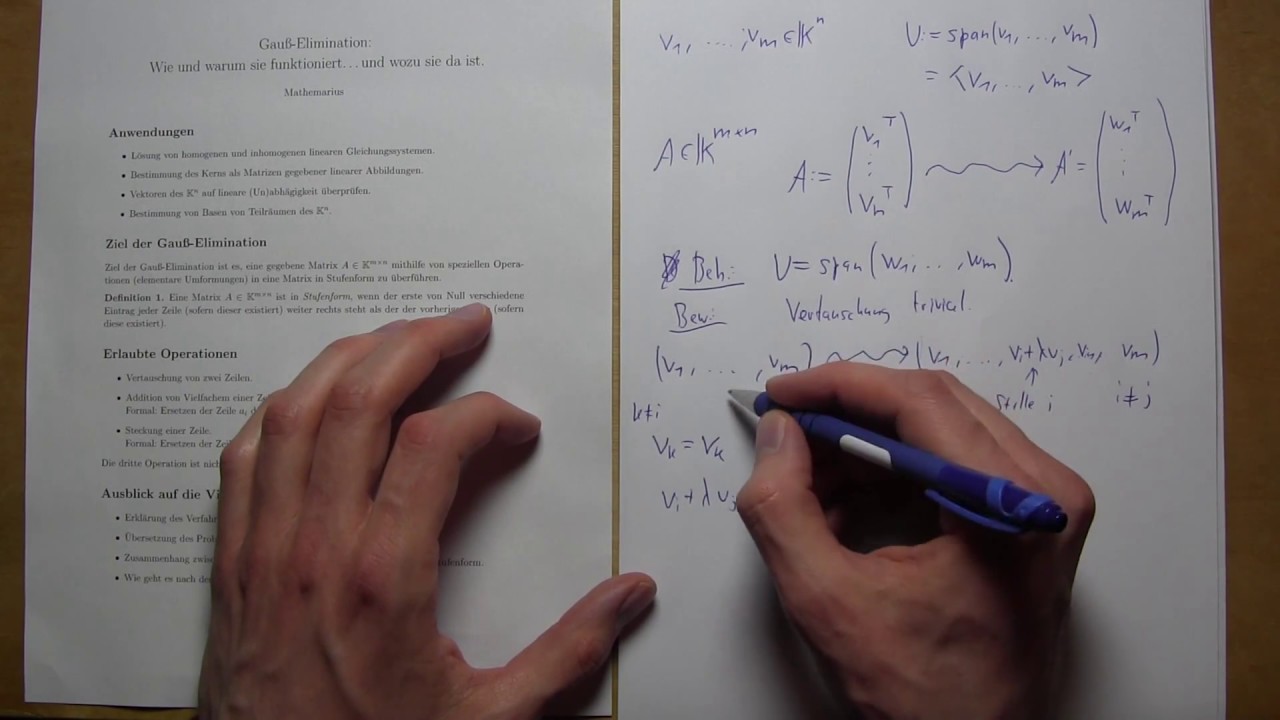 Gauß-Elimination:
Wie und warum sie funktioniert... und wozu sie da ist.
Mathemarius
Anwendungen
• Lösung von homogenen und inhomogenen linearen Gleichungssystemen.
• Bestimmung des Kerns als Matrizen gegebener linearer Abbildungen.
• Vektoren des 𝕂ⁿ auf lineare (Un)abhägigkeit überprüfen.
• Bestimmung von Basen von Teilräumen des 𝕂ⁿ.
Ziel der Gauß-Elimination
Ziel der Gauß-Elimination ist es, eine gegebene Matrix A ∈ 𝕂ᵐˣⁿ mithilfe von speziellen Opera-
tionen (elementare Umformungen) in eine Matrix in Stufenform zu überführen.
Definition 1. Eine Matrix A ∈ 𝕂ᵐˣⁿ ist in Stufenform, wenn der erste von Null verschiedene
Eintrag jeder Zeile (sofern dieser existiert) weiter rechts steht als der der (sofern
diese existiert).
Erlaubte Operationen
• Vertauschung von zwei Zeilen.
• Addition von Vielfachem einer
Formal: Ersetzen der Zeile
• Steckung einer Zeile.
Formal: Ersetzen der
Die dritte Operation ist
Ausblick auf die
• Erklärung des
• Übersetzung des
• Zusammenhang
• Wie geht es nach
v₁, ...., vₘ ∈ 𝕂ⁿ U := span(v₁, ..., vₘ)
= <v₁, ..., vₘ>
A ∈ 𝕂ᵐˣⁿ A := (v₁ᵀ ⋮ vₘᵀ) ⇝ A' = (w₁ᵀ ⋮ wₘᵀ)
Beh.: U = span(w₁, ..., wₘ).
Bew: Vertauschung trivial.
(v₁, ..., vₘ) ⇝ (v₁, ..., vᵢ+λvⱼ, vₘ)
↑
k≠i Stelle i i≠j
vₖ = vₖ
vᵢ + λvⱼ